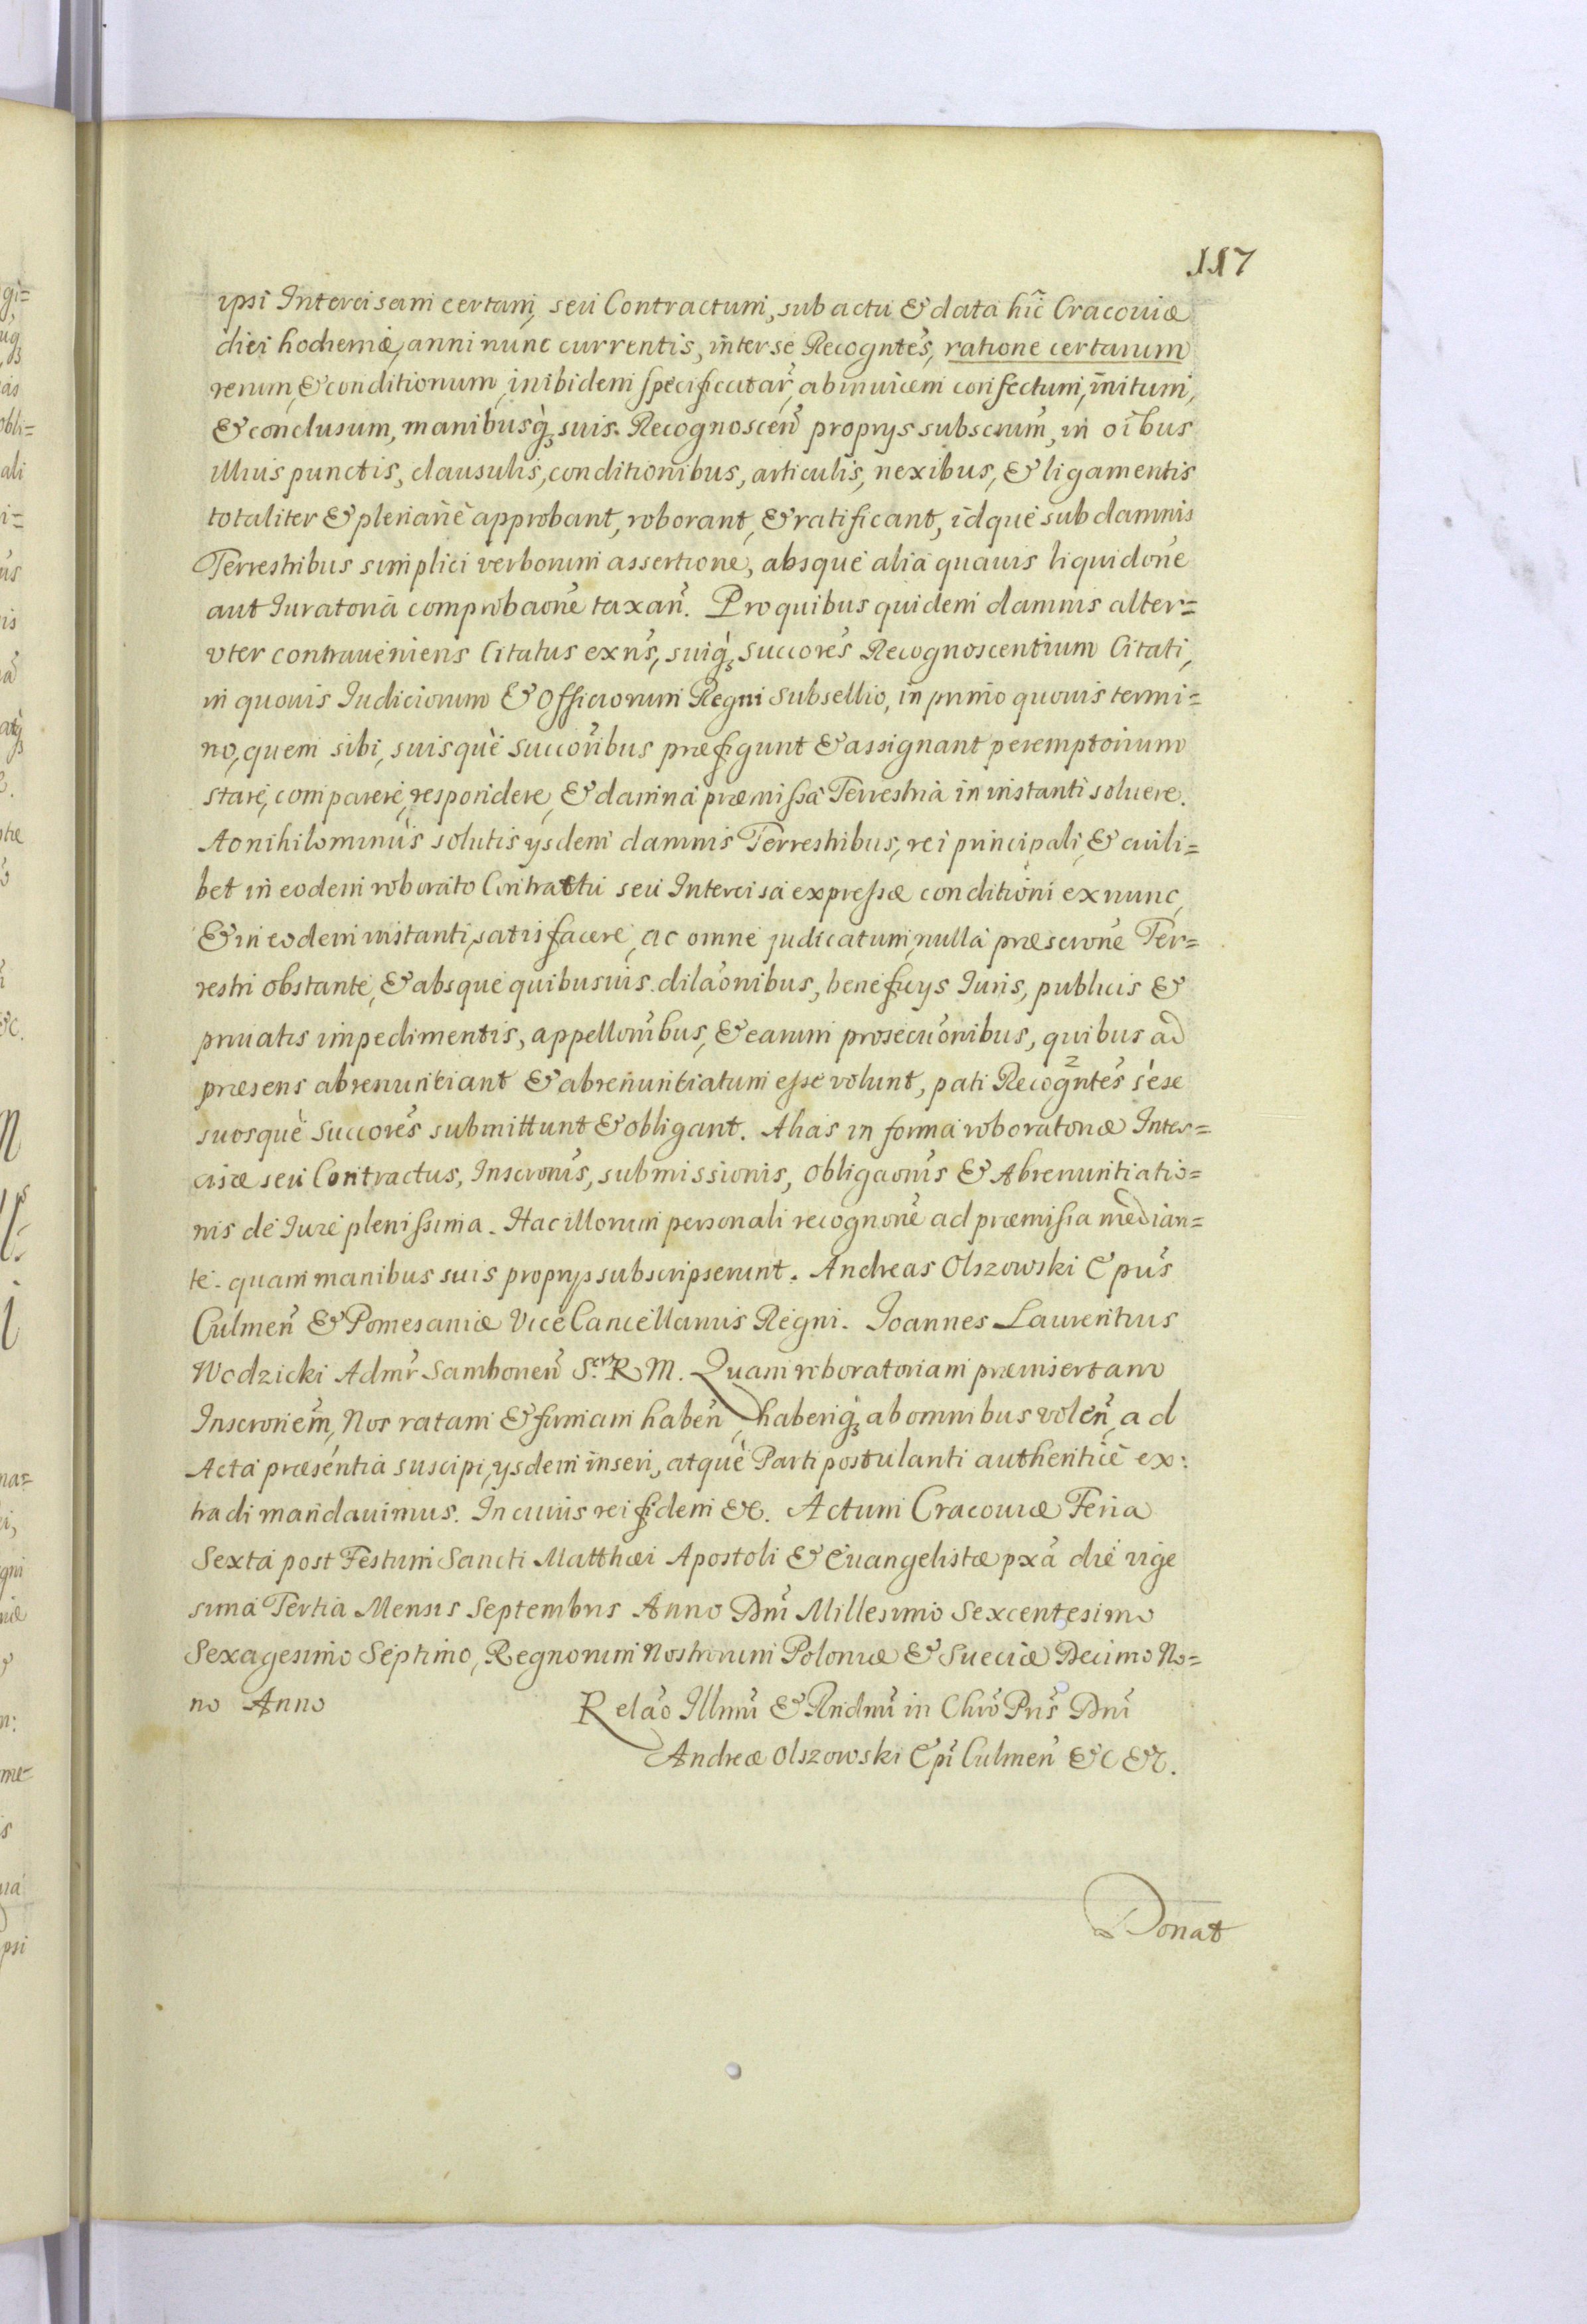 117
ipsi Intercisam certam, seu Contractum, sub actu & data hic̃ Cracouiæ
diei hodiernæ, anni nunc currentis, inter se Recogntẽs, ratione certarum
rerum, & conditionum, inibidem specificatar̃, abinuicem confectum, initum,
& conclusum, manibusq̀ꝫ suis Recognosceñ proprys subscrium̃, in oĩbus
illius punctis, clausulis, conditionibus, articulis, nexibus, & ligamentis
totaliter & plenariè approbant, roborant, & ratificant, idquè sub damnis
Terrestribus simplici verborum assertione, absque aliâ quauis liquidoñe
aut Iuratoriâ comprobaoñe taxañ. Pro quibus quidem damnis alter=
vter contraueniens Citatus exñs, suiq̀ꝫ succorẽs Recognoscentium Citati,
in quouis Iudiciorum & Officiorum Regni subsellio, in primo quouis termi=
no, quem sibi, suisquè succorĩbus præfigunt & assignant peremptorium
stare, comparere, respondere, & damna præmissa Terrestria in instanti soluere.
Ac nihilominùs solutis ysdem damnis Terrestribus, rei principali, & cuili=
bet in eodem roborato Contractu seu Intercisa expressæ conditioni ex nunc,
& in eodem instanti, satisfacere, ac omne judicatum, nullâ præscrioñe Ter=
restri obstante, & absque quibusuis dilaõnibus, beneficys Iuris, publicis &
priuatis impedimentis, appellonĩbus, & earum prosecuõnibus, quibus ad
præsens abrenuntiant & abrenuntiatum esse volunt, pati Recogntẽs sese
suosquè succorẽs submittunt & obligant. Alias in forma roboratoriæ Inter=
cisæ seu Contractus, Inscrionĩs, submissionis, obligaonĩs & Abrenuntiatio=
nis de Iure plenissima. Hac illorum personali recognonẽ ad præmissa median=
te. quam manibus suis proprys subscripserunt. Andreas Olszowski Epũs
Culmeñ & Pomesaniæ ViceCancellarius Regni. Ioannes Laurentius
Wodzicki Admr̃ Samborieñ S.ᵉʳ R M. Quam roboratoriam præinsertam
Inscrionem̃, Nos ratam & firmam habeñ, haberiq̀ꝫ ab omnibus voleñ, ad
Acta præsentia suscipi, ysdem inseri, atquè Parti postulanti authenticè ex:
tradi mandauimus. In cuius rei fidem &c. Actum Cracouiæ Feria
Sexta post Festum Sancti Matthæi Apostoli & Euangelistæ pxâ die vige
sima Tertia Mensis Septembris Anno Dnĩ Millesimo Sexcentesimo
Sexagesimo Septimo, Regnorum Nostrorum Poloniæ & Sueciæ Decimo No=
no Anno
Relaõ Illmĩ & Rndmĩ in Chrõ Prĩs Dnĩ
Andreæ Olszowski Epĩ Culmeñ &c &c.
Donat